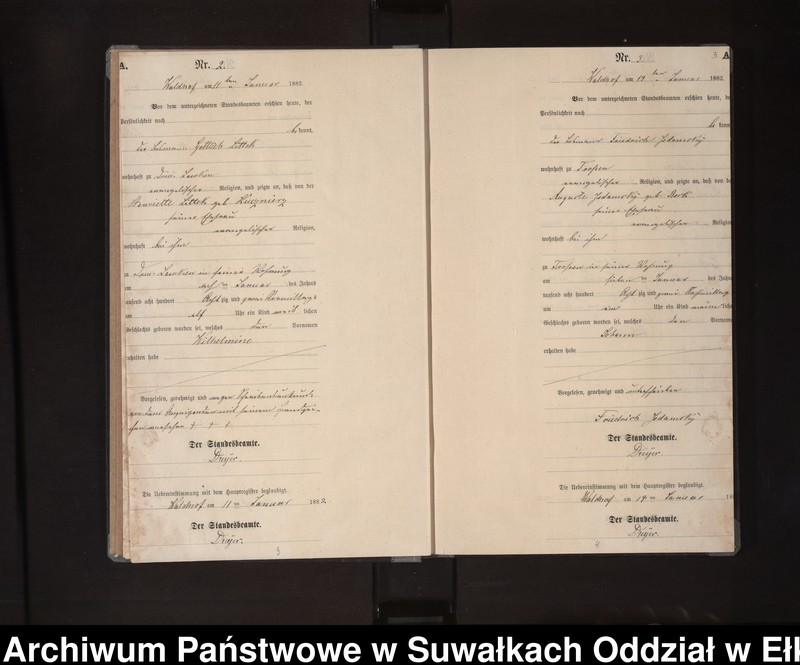 A.
Nr. 2.
Waldhof am 11ten Januar 1882
Vor dem unterzeichneten Standesbeamten erschien heute, der
Persönlichkeit nach
be kannt,
der Gottlieb Littek
wohnhaft zu Dom.
evangelischer Religion, und zeigte an, daß von der
Henriette Littek geb.
seiner Ehefrau
evangelischer Religion,
wohnhaft bei ihm
zu Dom. in seiner Wohnung
am acht ten Januar des Jahres
tausend acht hundert Acht zig und zwei Vormittags
um elf Uhr ein Kind weib lichen
Geschlechts geboren worden sei, welches den Vornamen
Wilhelmine
erhalten habe
Vorgelesen, genehmigt und wegen
von dem Anzeigenden mit seinem Handzei-
chen versehen † † †
Der Standesbeamte.
Dreyer.
Die Uebereinstimmung mit dem Hauptregister beglaubigt.
Waldhof am 11ten Januar 1882.
Der Standesbeamte.
Dreyer.
3
Nr. 3. 3 A
Waldhof am 14ten Januar 1882
Vor dem unterzeichneten Standesbeamten erschien heute, de
Persönlichkeit nach
be kann
der Friedrich Jedamsky
wohnhaft zu
evangelischer Religion, und zeigte an, daß von de
Auguste Jedamsky geb.
seiner Ehefrau
evangelischer Religion
wohnhaft bei ihm
zu in seiner Wohnung
am sieben ten Januar des Jahre
tausend acht hundert Acht zig und zwei Nachmittags
um ein Uhr ein Kind männ liche
Geschlechts geboren worden sei, welches den Vorname
erhalten habe
Vorgelesen, genehmigt und unterschrieben
Friedrich Jedamsky
Der Standesbeamte.
Dreyer.
Die Uebereinstimmung mit dem Hauptregister beglaubigt.
Waldhof am 14ten Januar 18
Der Standesbeamte.
Dreyer.
4
Archiwum Państwowe w Suwałkach Oddział w Ełk